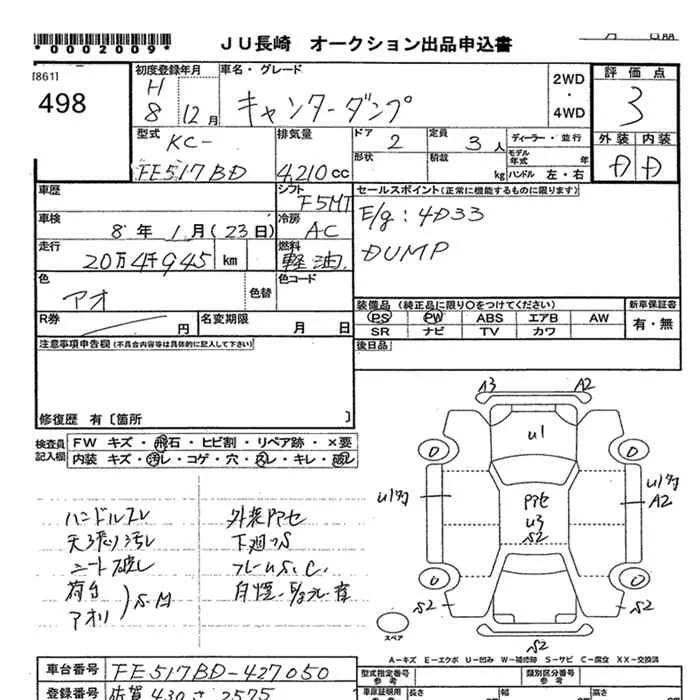 *0002009*
JU長崎 オークション出品申込書
[861]
498
初度登録年月
H
8 12月
車名・グレード
キャンターダンプ
2WD
・
4WD
評価点
3
外装 内装
D D
型式
KC-
FE517BD
排気量
4.210cc
ドア 2
形状
定員 3人
積載 kg
ディーラー・並行
モデル年式 年
ハンドル 左・右
車歴
シフト F5MT
セールスポイント(正常に機能するものに限ります)
E/g:4D33
DUMP
車検
8年 1月(23日)
冷房 AC
走行
20万4千945 km
燃料 軽油
色
アオ
色替
色コード
R券 円
名変期限 月 日
装備品(純正品に限り○をつけてください)
PS PW ABS エアB AW
SR ナビ TV カワ
新車保証書
有・無
注意事項申告欄(不具合内容等は具体的に記入して下さい)
後日品
修復歴 有〔箇所 〕
検査員記入欄
FW キズ・飛石・ヒビ割・リペア跡・×要
内装 キズ・汚レ・コゲ・穴・スレ・キレ・破レ
ハンドルスレ
天張り汚レ
シート破レ
荷台
アオリ
S.M
外装
下廻りS
フレームS.C.
A3 A2
U1
U3
S2
A2
S2 S2
S2
スペア
A-キズ E-エクボ U-凹み W-補修跡 S-サビ C-腐食 XX-交換済
車台番号 FE517BD-427050
登録番号 佐賀 430 さ 2575
型式指定番号
参考
類別区分番号
参考
長さ 幅 高さ